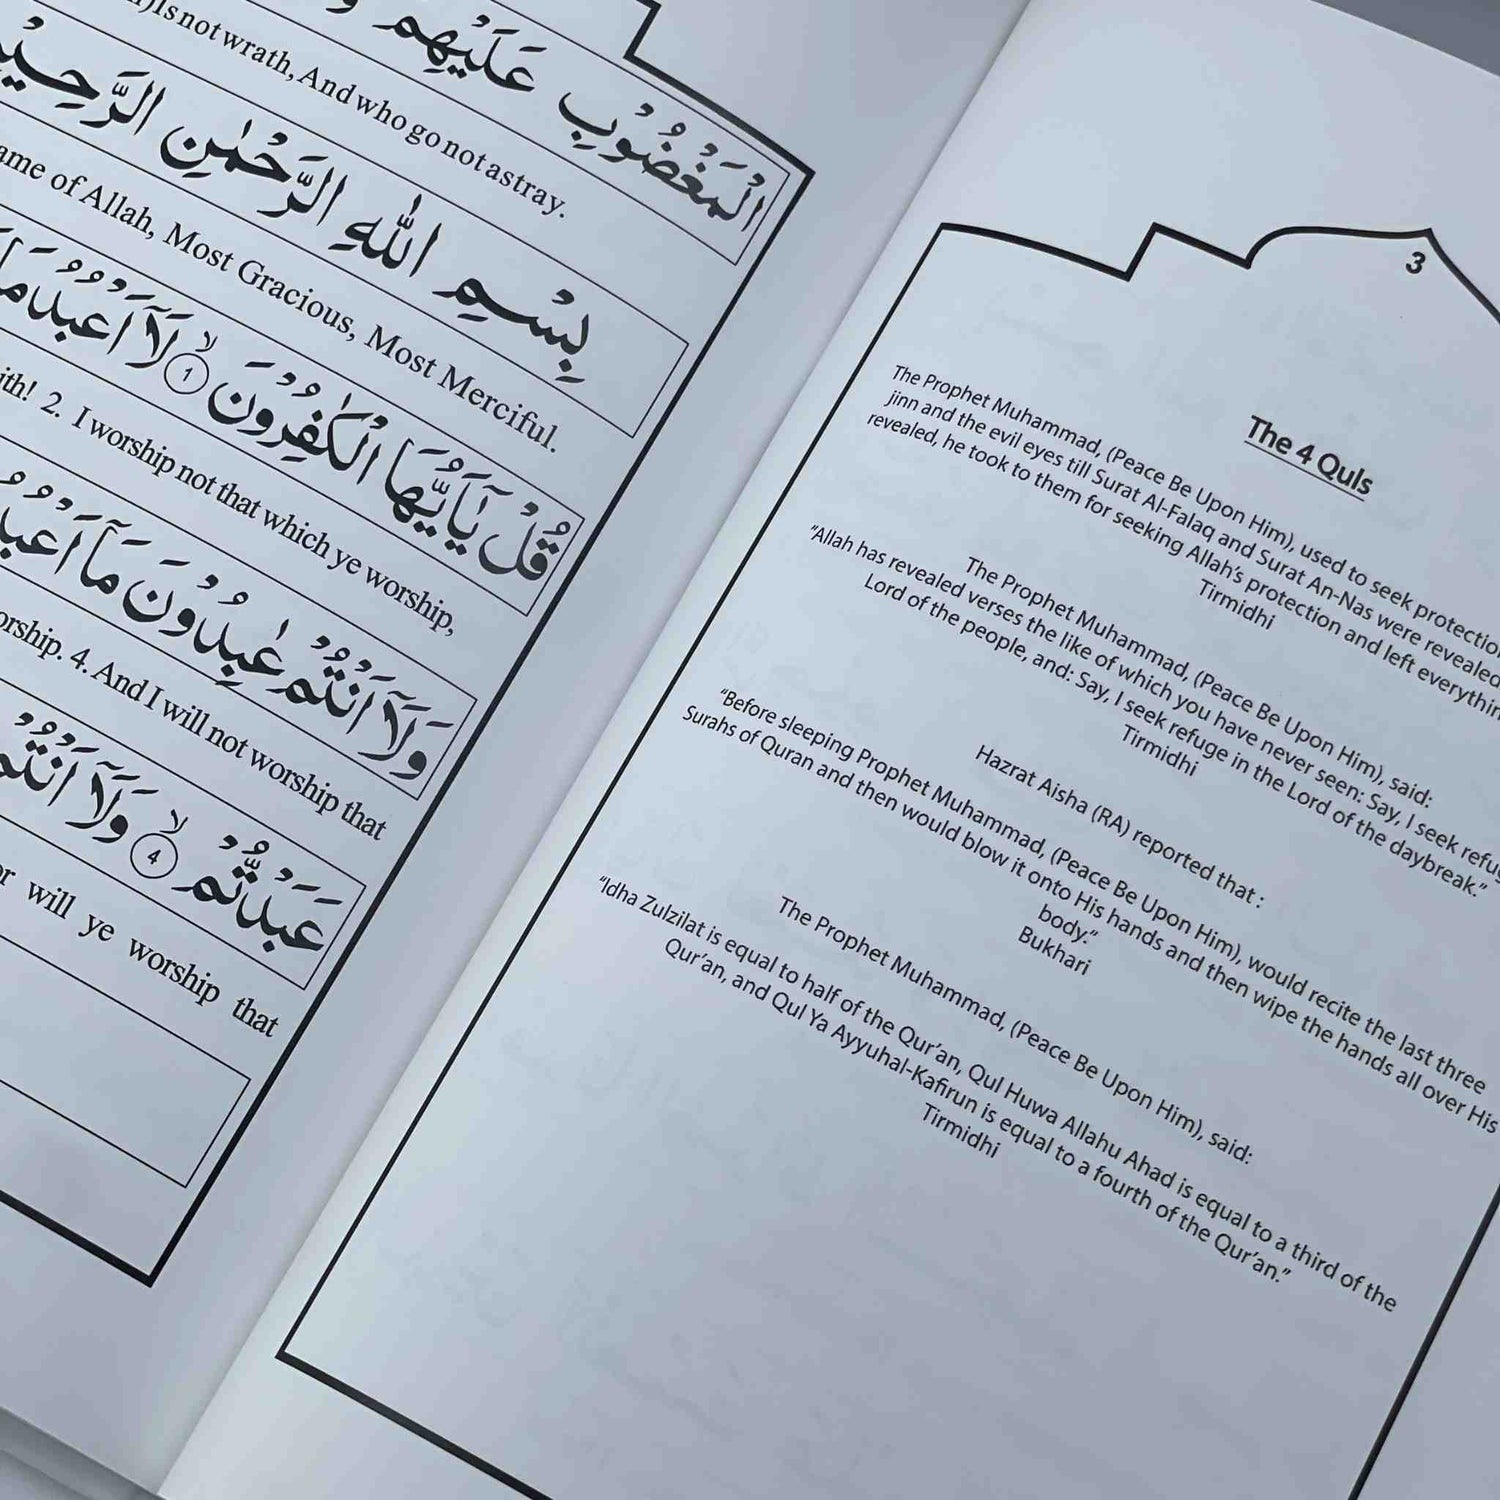 الْمَغْضُوْبِ عَلَيْهِمْ
Is not wrath, And who go not astray.
بِسْمِ اللّٰهِ الرَّحْمٰنِ
of Allah, Most Gracious, Most Merciful.
قُلْ يٰٓاَيُّهَا الْكٰفِرُوْنَ ۙ 1 لَآ اَعْبُدُ
2. I worship not that which ye worship,
وَلَآ اَنْتُمْ عٰبِدُوْنَ مَآ
4. And I will not worship that
عَبَدْتُّمْ ۙ 4 وَلَآ
will ye worship that
3
The 4 Quls
The Prophet Muhammad, (Peace Be Upon Him), used to seek
jinn and the evil eyes till Surat Al-Falaq and Surat An-Nas were revealed
revealed, he took to them for seeking Allah's protection and left
Tirmidhi
The Prophet Muhammad, (Peace Be Upon Him), said:
"Allah has revealed verses the like of which you have never seen: Say, I seek
Lord of the people, and: Say, I seek refuge in the Lord of the daybreak."
Tirmidhi
Hazrat Aisha (RA) reported that :
"Before sleeping Prophet Muhammad, (Peace Be Upon Him), would recite the last three
Surahs of Quran and then would blow it onto His hands and then wipe the hands all over His
body."
Bukhari
The Prophet Muhammad, (Peace Be Upon Him), said:
"Idha Zulzilat is equal to half of the Qur'an, Qul Huwa Allahu Ahad is equal to a third of the
Qur'an, and Qul Ya Ayyuhal-Kafirun is equal to a fourth of the Qur'an."
Tirmidhi